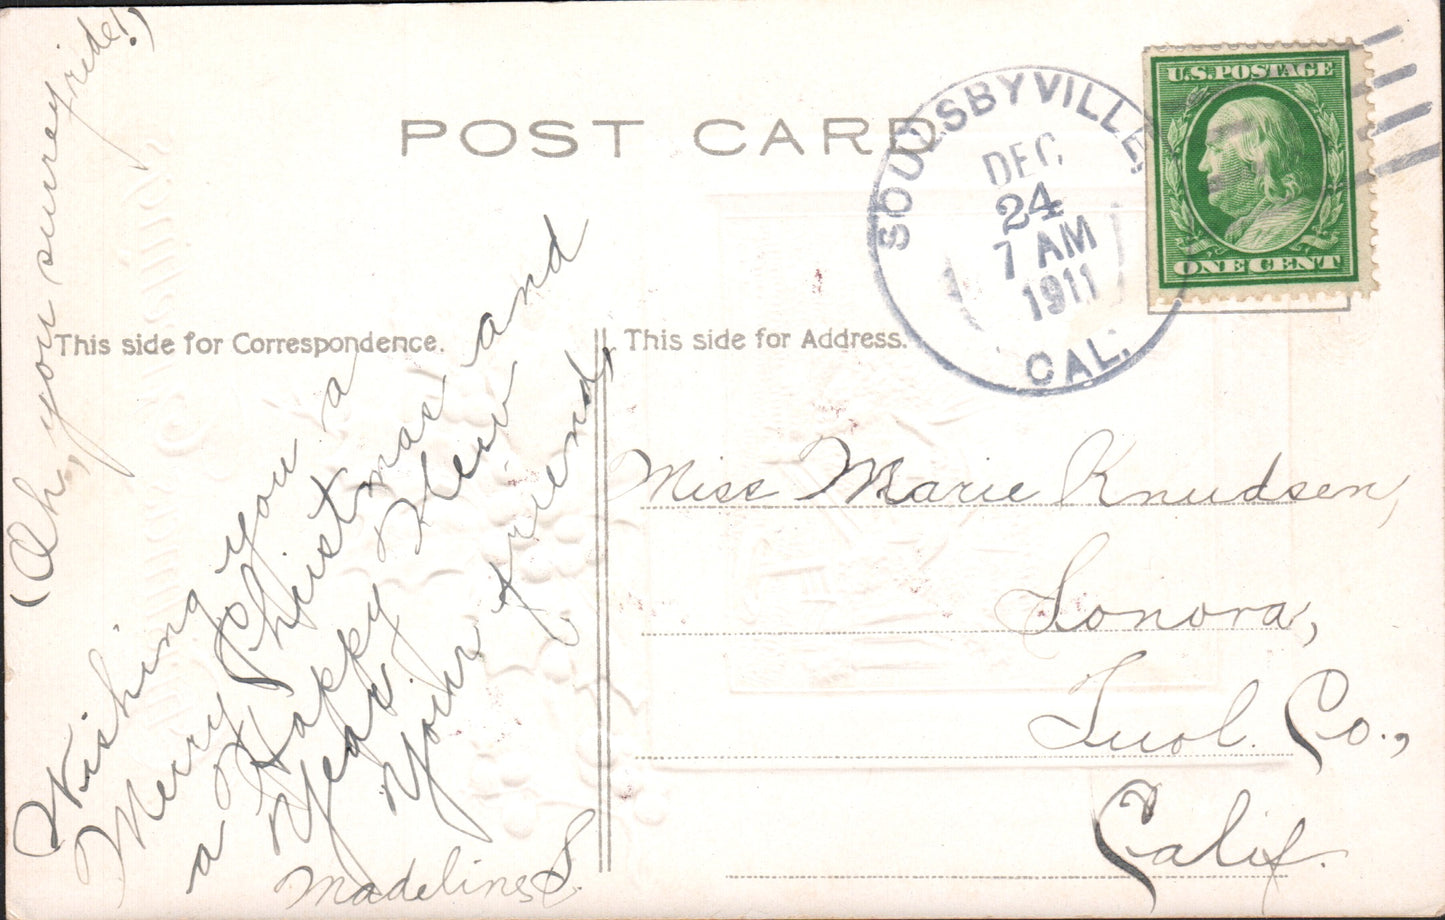 POST CARD
SOULSBYVILLE,
DEC
24
7 AM
1911
CAL.
U.S. POSTAGE
ONE CENT
This side for Correspondence.
This side for Address.
(Oh, you surrey ride!)
Wishing you a
Merry Christmas and
a Happy New
Year.
Your friend,
Madeline S.
Miss Marie Knudsen,
Sonora,
Tuol. Co.,
Calif.